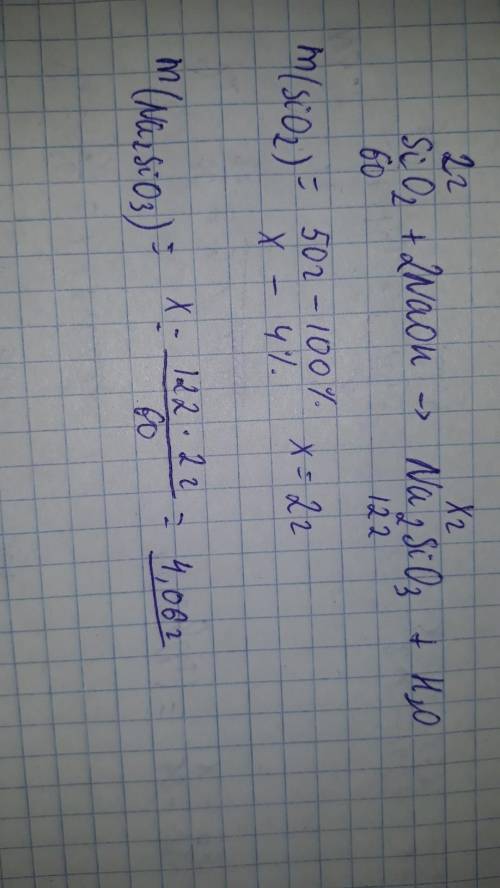 2г xг
SiO2 + 2NaOh → Na2SiO3 + H2O
60 122
m(SiO2) = 50г - 100% x = 2г
x - 4%
m(Na2SiO3) = x = 122 · 2г = 4,06г
60